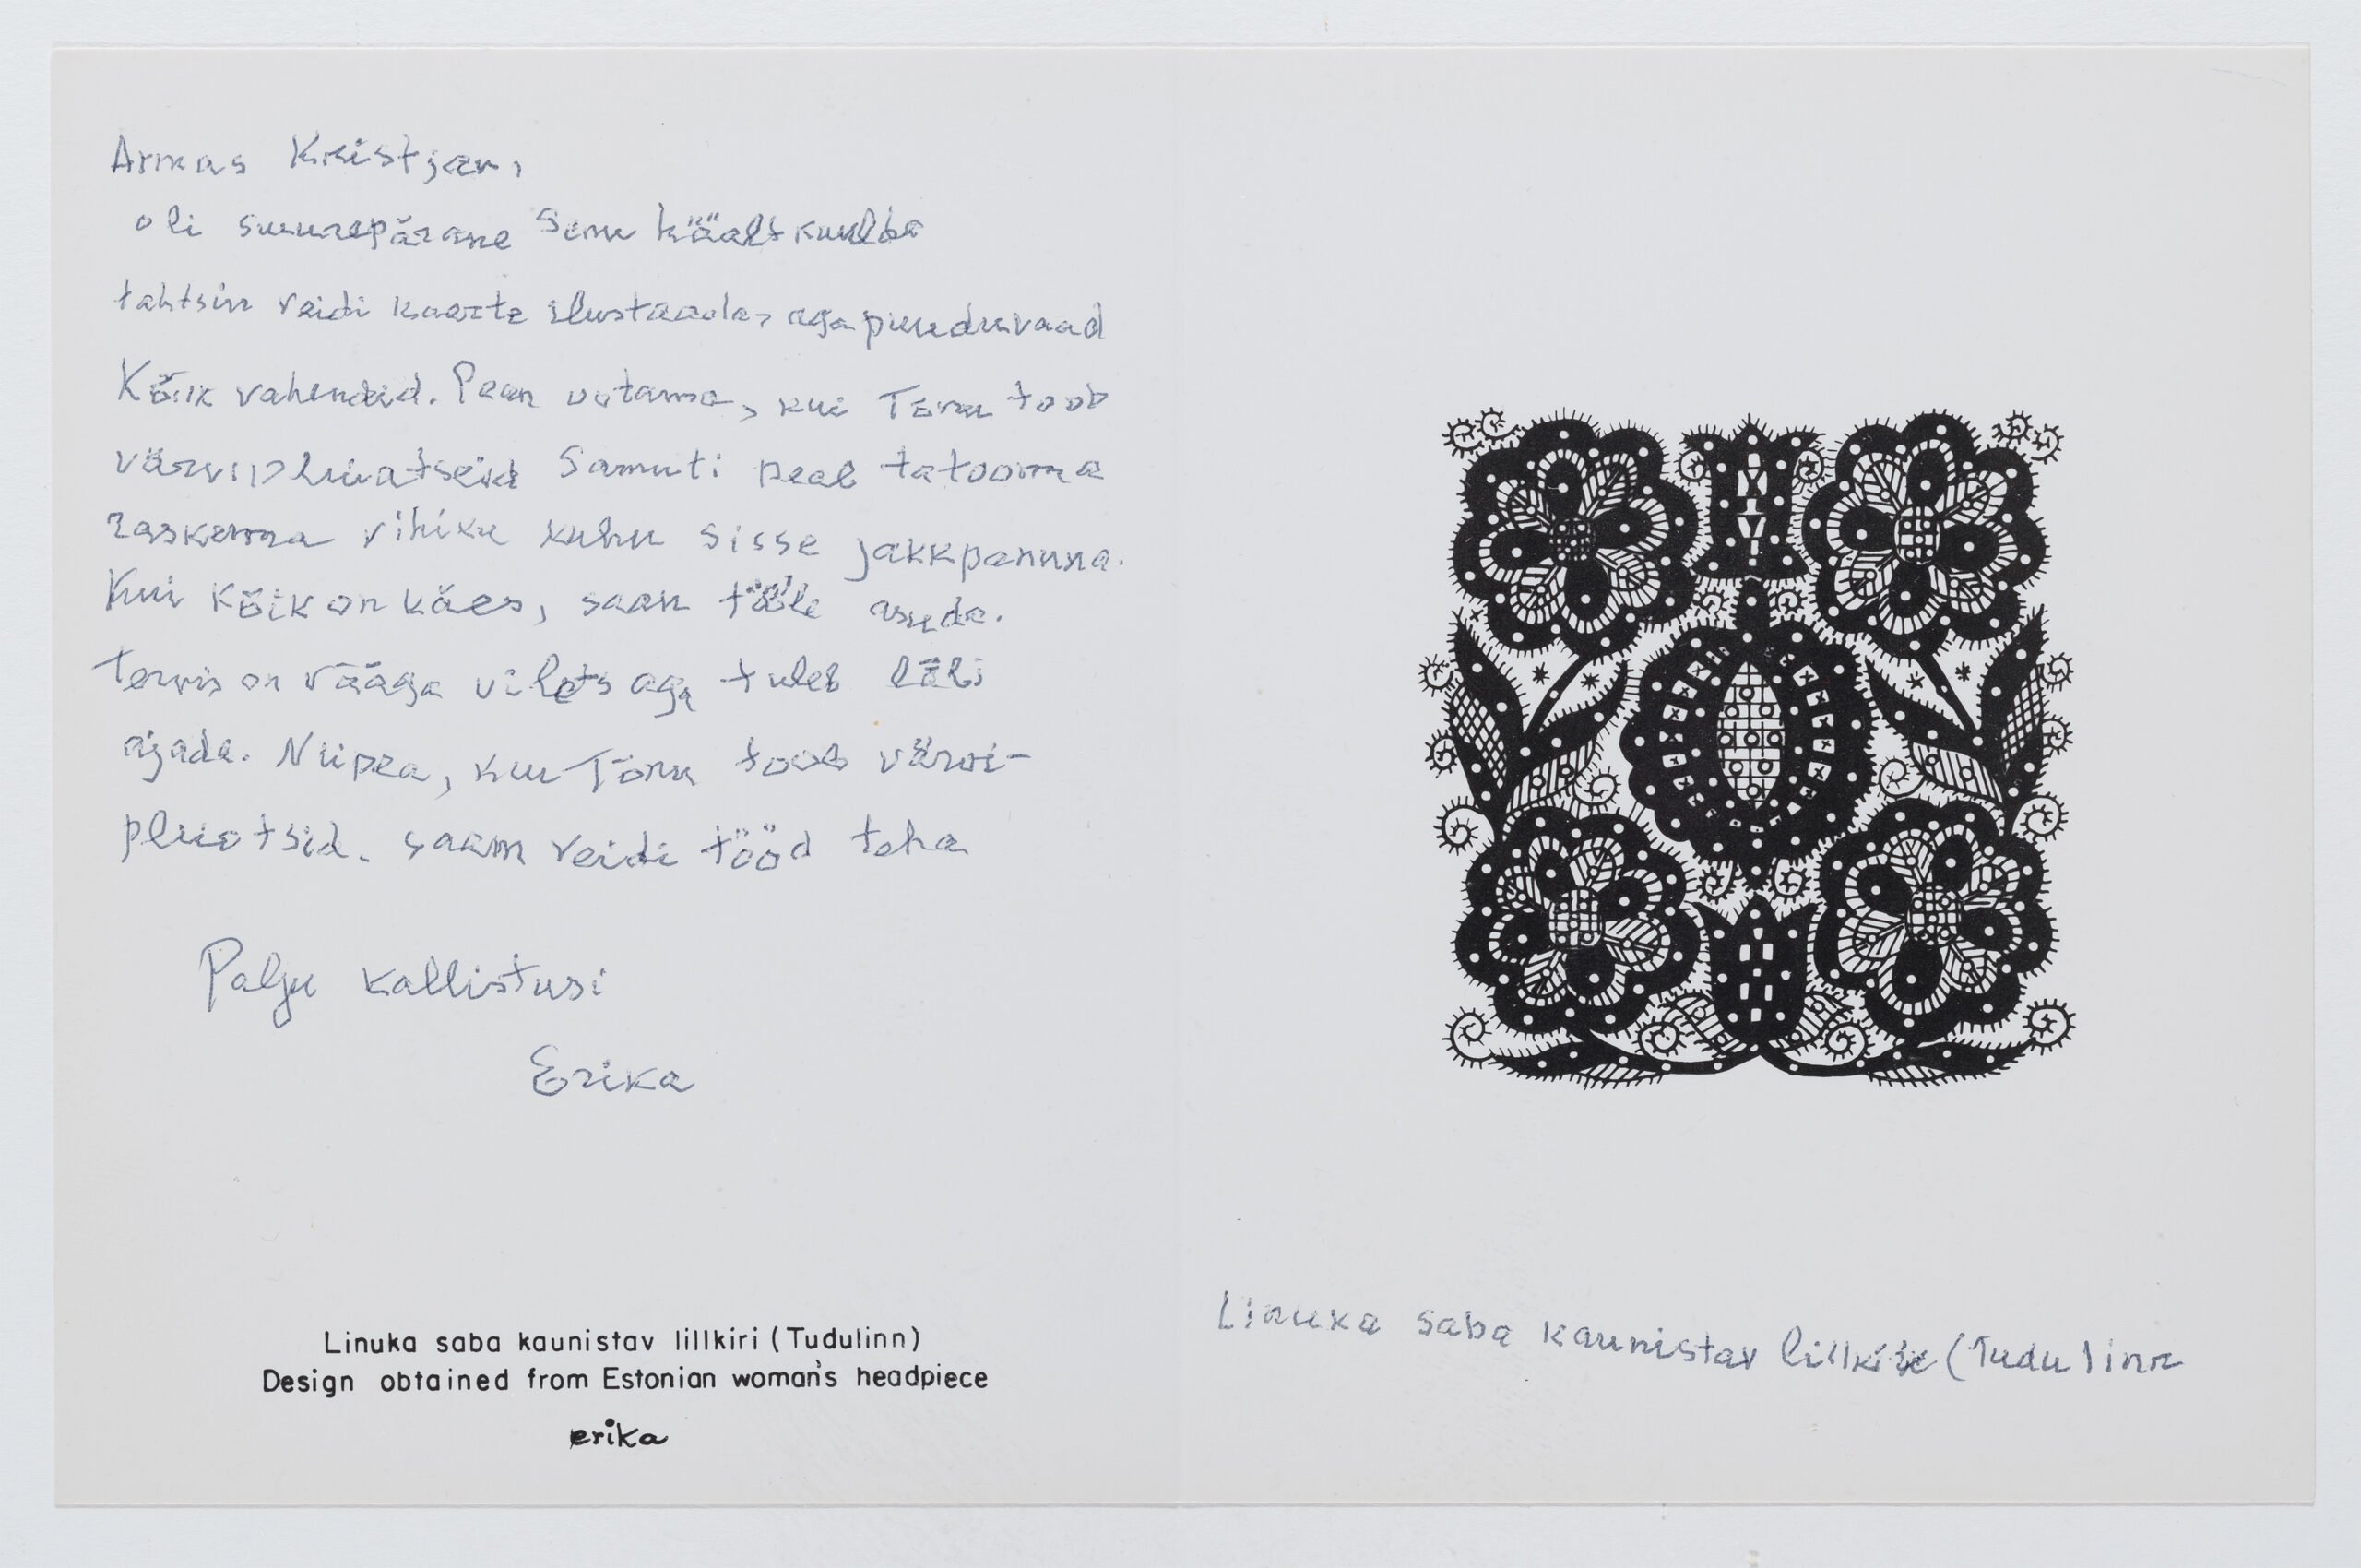 Armas Kristjan,
oli suurepärane Sinu käält kuulda
tahtsin veidi kaarte ilustada, aga puuduvaad
Kõik vahendid. Pean ootama, kui Tõnu toob
värvipliiatseid Samuti peab tatooma
raskema vihiku kuhu sisse jakkpanuna.
Kui kõik on käes, saan tööle asuda.
Tervis on vääga vilets aga tuleb läbi
ajada. Niipea, kuu Tõnu toob värvi-
pliiatsid. saam veidi tööd teha
Palju kallistusi
Erika
Linuka saba kaunistav lillkiri (Tudulinn)
Design obtained from Estonian woman's headpiece
erika
Linuka saba kaunistav (Tudulinn